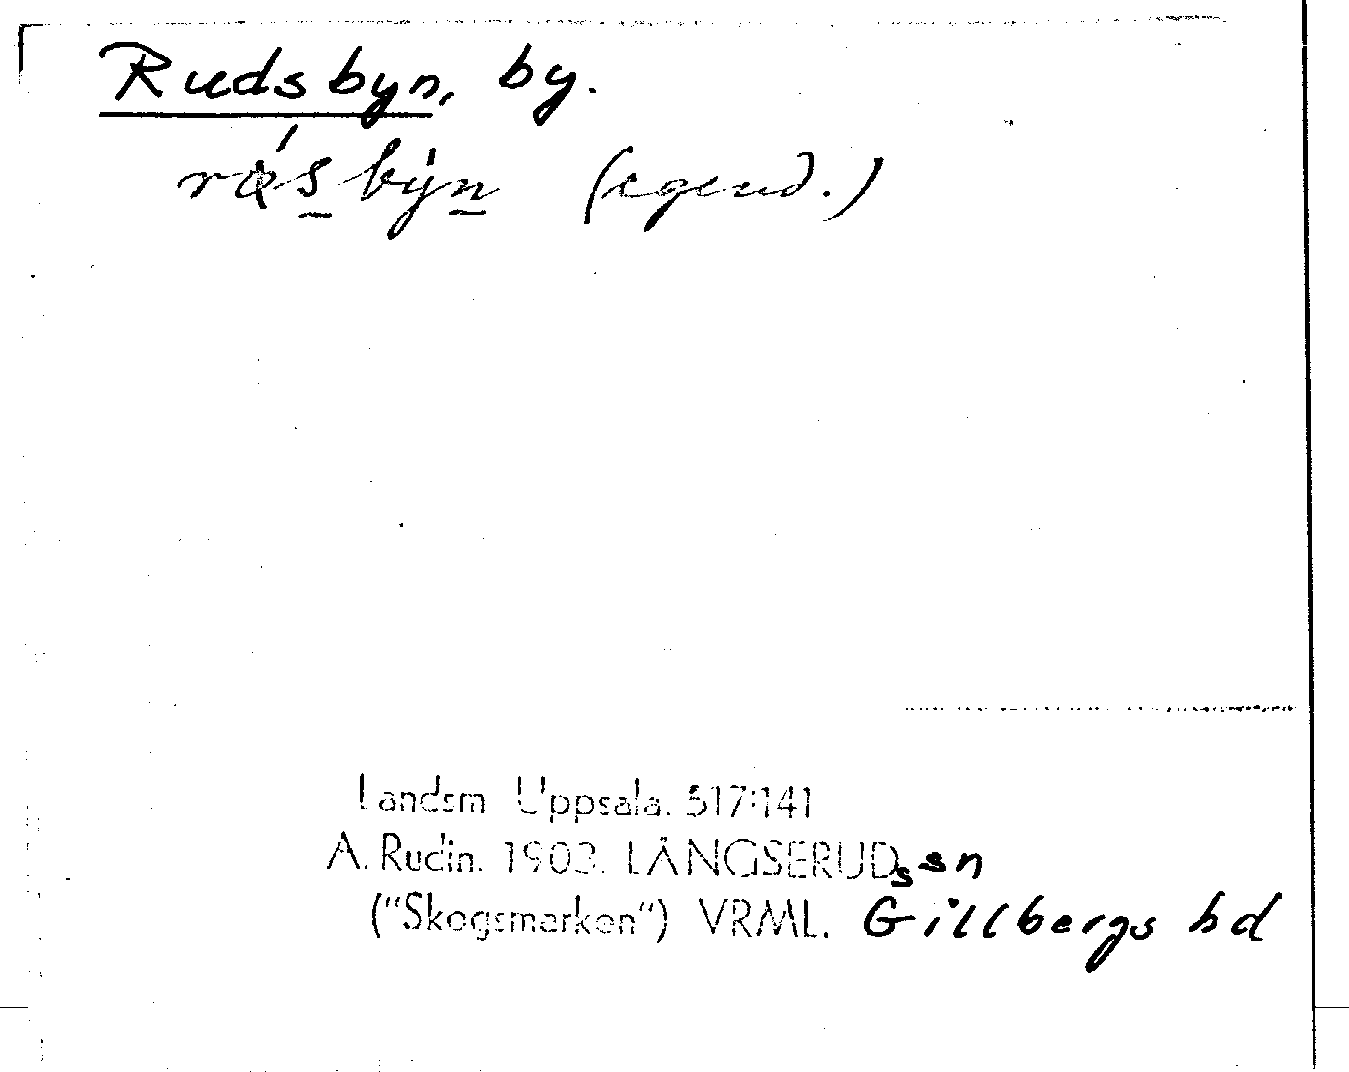 Rudsbyn, by.
rǿs býn (egend.)
Landsm Uppsala. 517:141
A. Rudin. 1903. LÅNGSERUDs sn
("Skogsmarken") VRML. Gillbergs hd